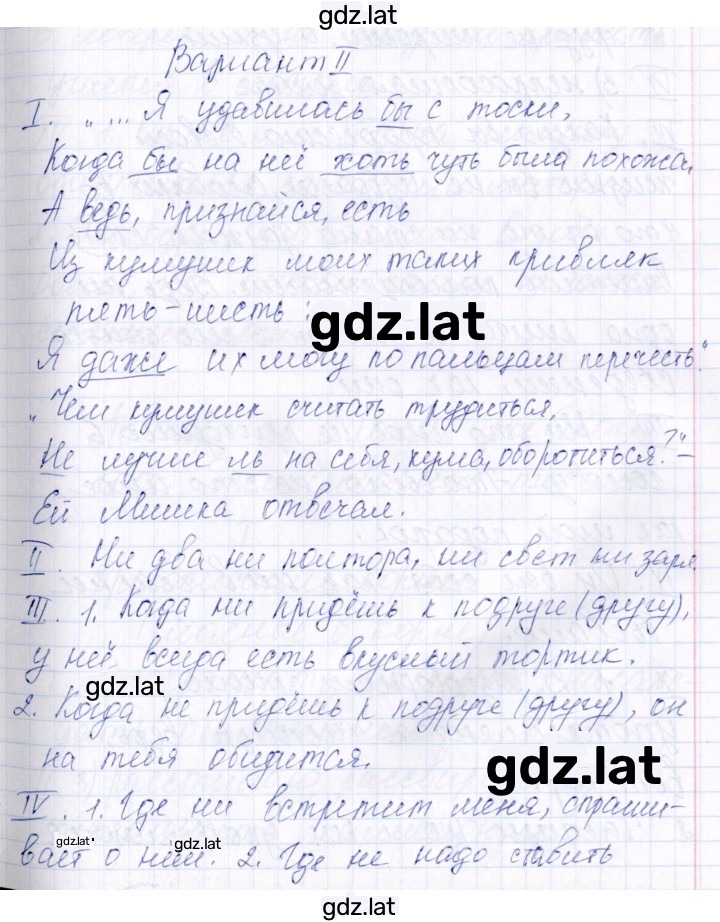 gdz.lat
Вариант II
I. "... Я удавилась бы с тоски,
Когда бы на неё хоть чуть была похожа,
А ведь, признайся, есть
Из кумушек моих таких кривляк
пять-шесть :
gdz.lat
Я даже их могу по пальцам перечесть".
"Чем кумушек считать трудиться,
Не лучше ль на себя, кума, оборотиться?" -
Ей Мишка отвечал.
II. Ни два ни полтора, ни свет ни заря.
III. 1. Когда ни придёшь к подруге (другу),
у неё всегда есть вкусный тортик.
gdz.lat
2. Когда не придёшь к подруге (другу), он
на тебя обидится.
gdz.lat
IV. 1. Где ни встретит меня, спраши-
gdz.lat
gdz.lat
вает о нём. 2. Где не надо ставить
gdz.lat